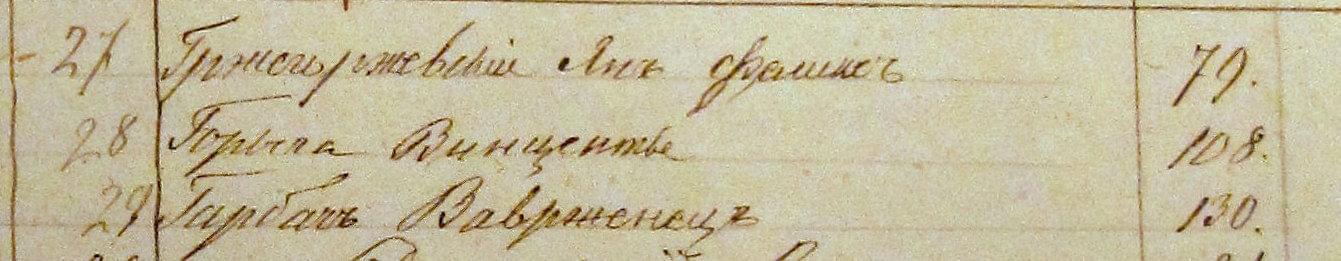 27 Гржегоржевскій Янъ Феликсъ 79.
28 Горыла Винцентъе 108.
29 Гарбачъ Ваврженецъ 130.